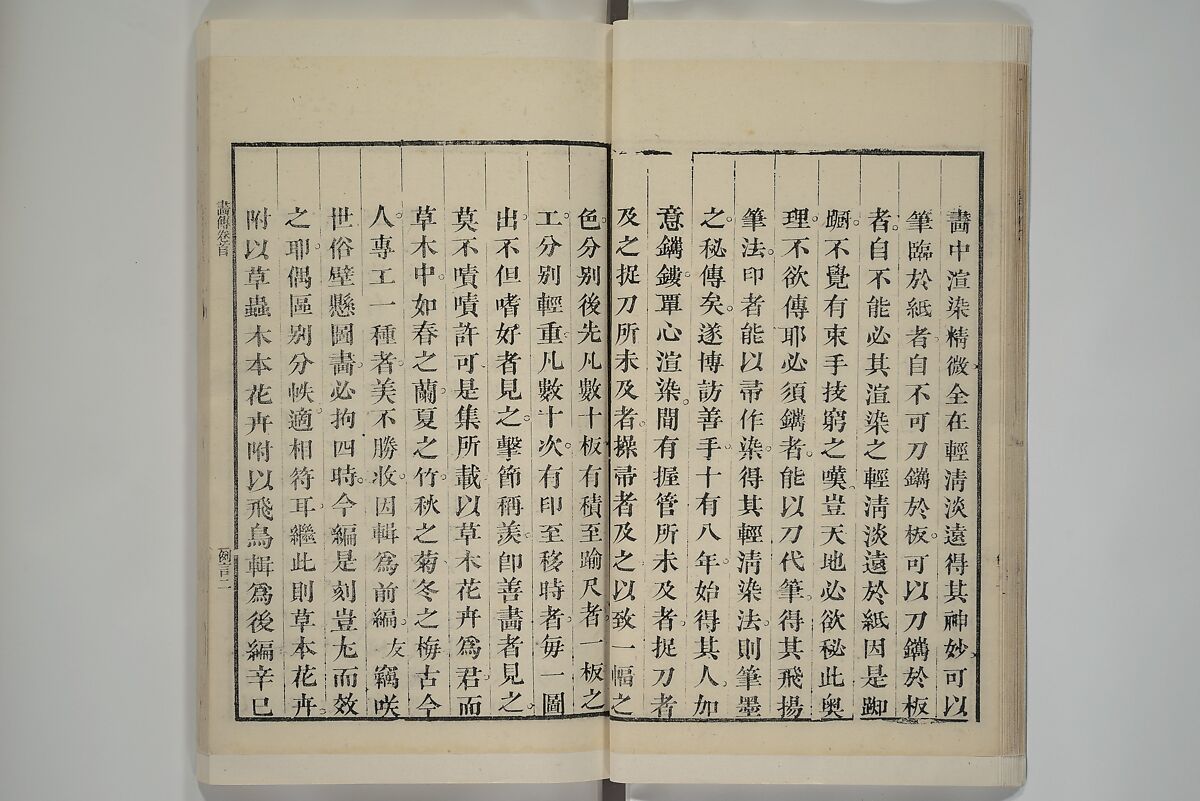 畵中渲染精微全在輕淸淡遠得其神妙可以
筆臨於紙者自不可刀鐫於板可以刀鐫於板
者自不能必其渲染之輕淸淡遠於紙因是踟
蹰不覺有束手技窮之嘆豈天地必欲秘此奥
理不欲傳耶必須鐫者能以刀代筆得其飛揚
筆法印者能以帚作染得其輕淸染法則筆墨
之秘傳矣遂博訪善手十有八年始得其人加
意鐫鏤覃心渲染間有握管所未及者捉刀者
及之捉刀所未及者操帚者及之以致一幅之
色分別後先凡數十板有積至踰尺者一板之
工分別輕重凡數十次有印至移時者每一圖
出不但嗜好者見之擊節稱羨卽善畵者見之
莫不嘖嘖許可是集所載以草木花卉爲君而
草木中如春之蘭夏之竹秋之菊冬之梅古今
人專工一種者美不勝收因輯爲前編友竊咲
世俗壁懸圖畵必拘四時今編是刻豈尤而效
之耶偶區别分帙適相符耳繼此則草本花卉
附以草蟲木本花卉附以飛鳥輯爲後編辛巳
畵傳卷首
例言二